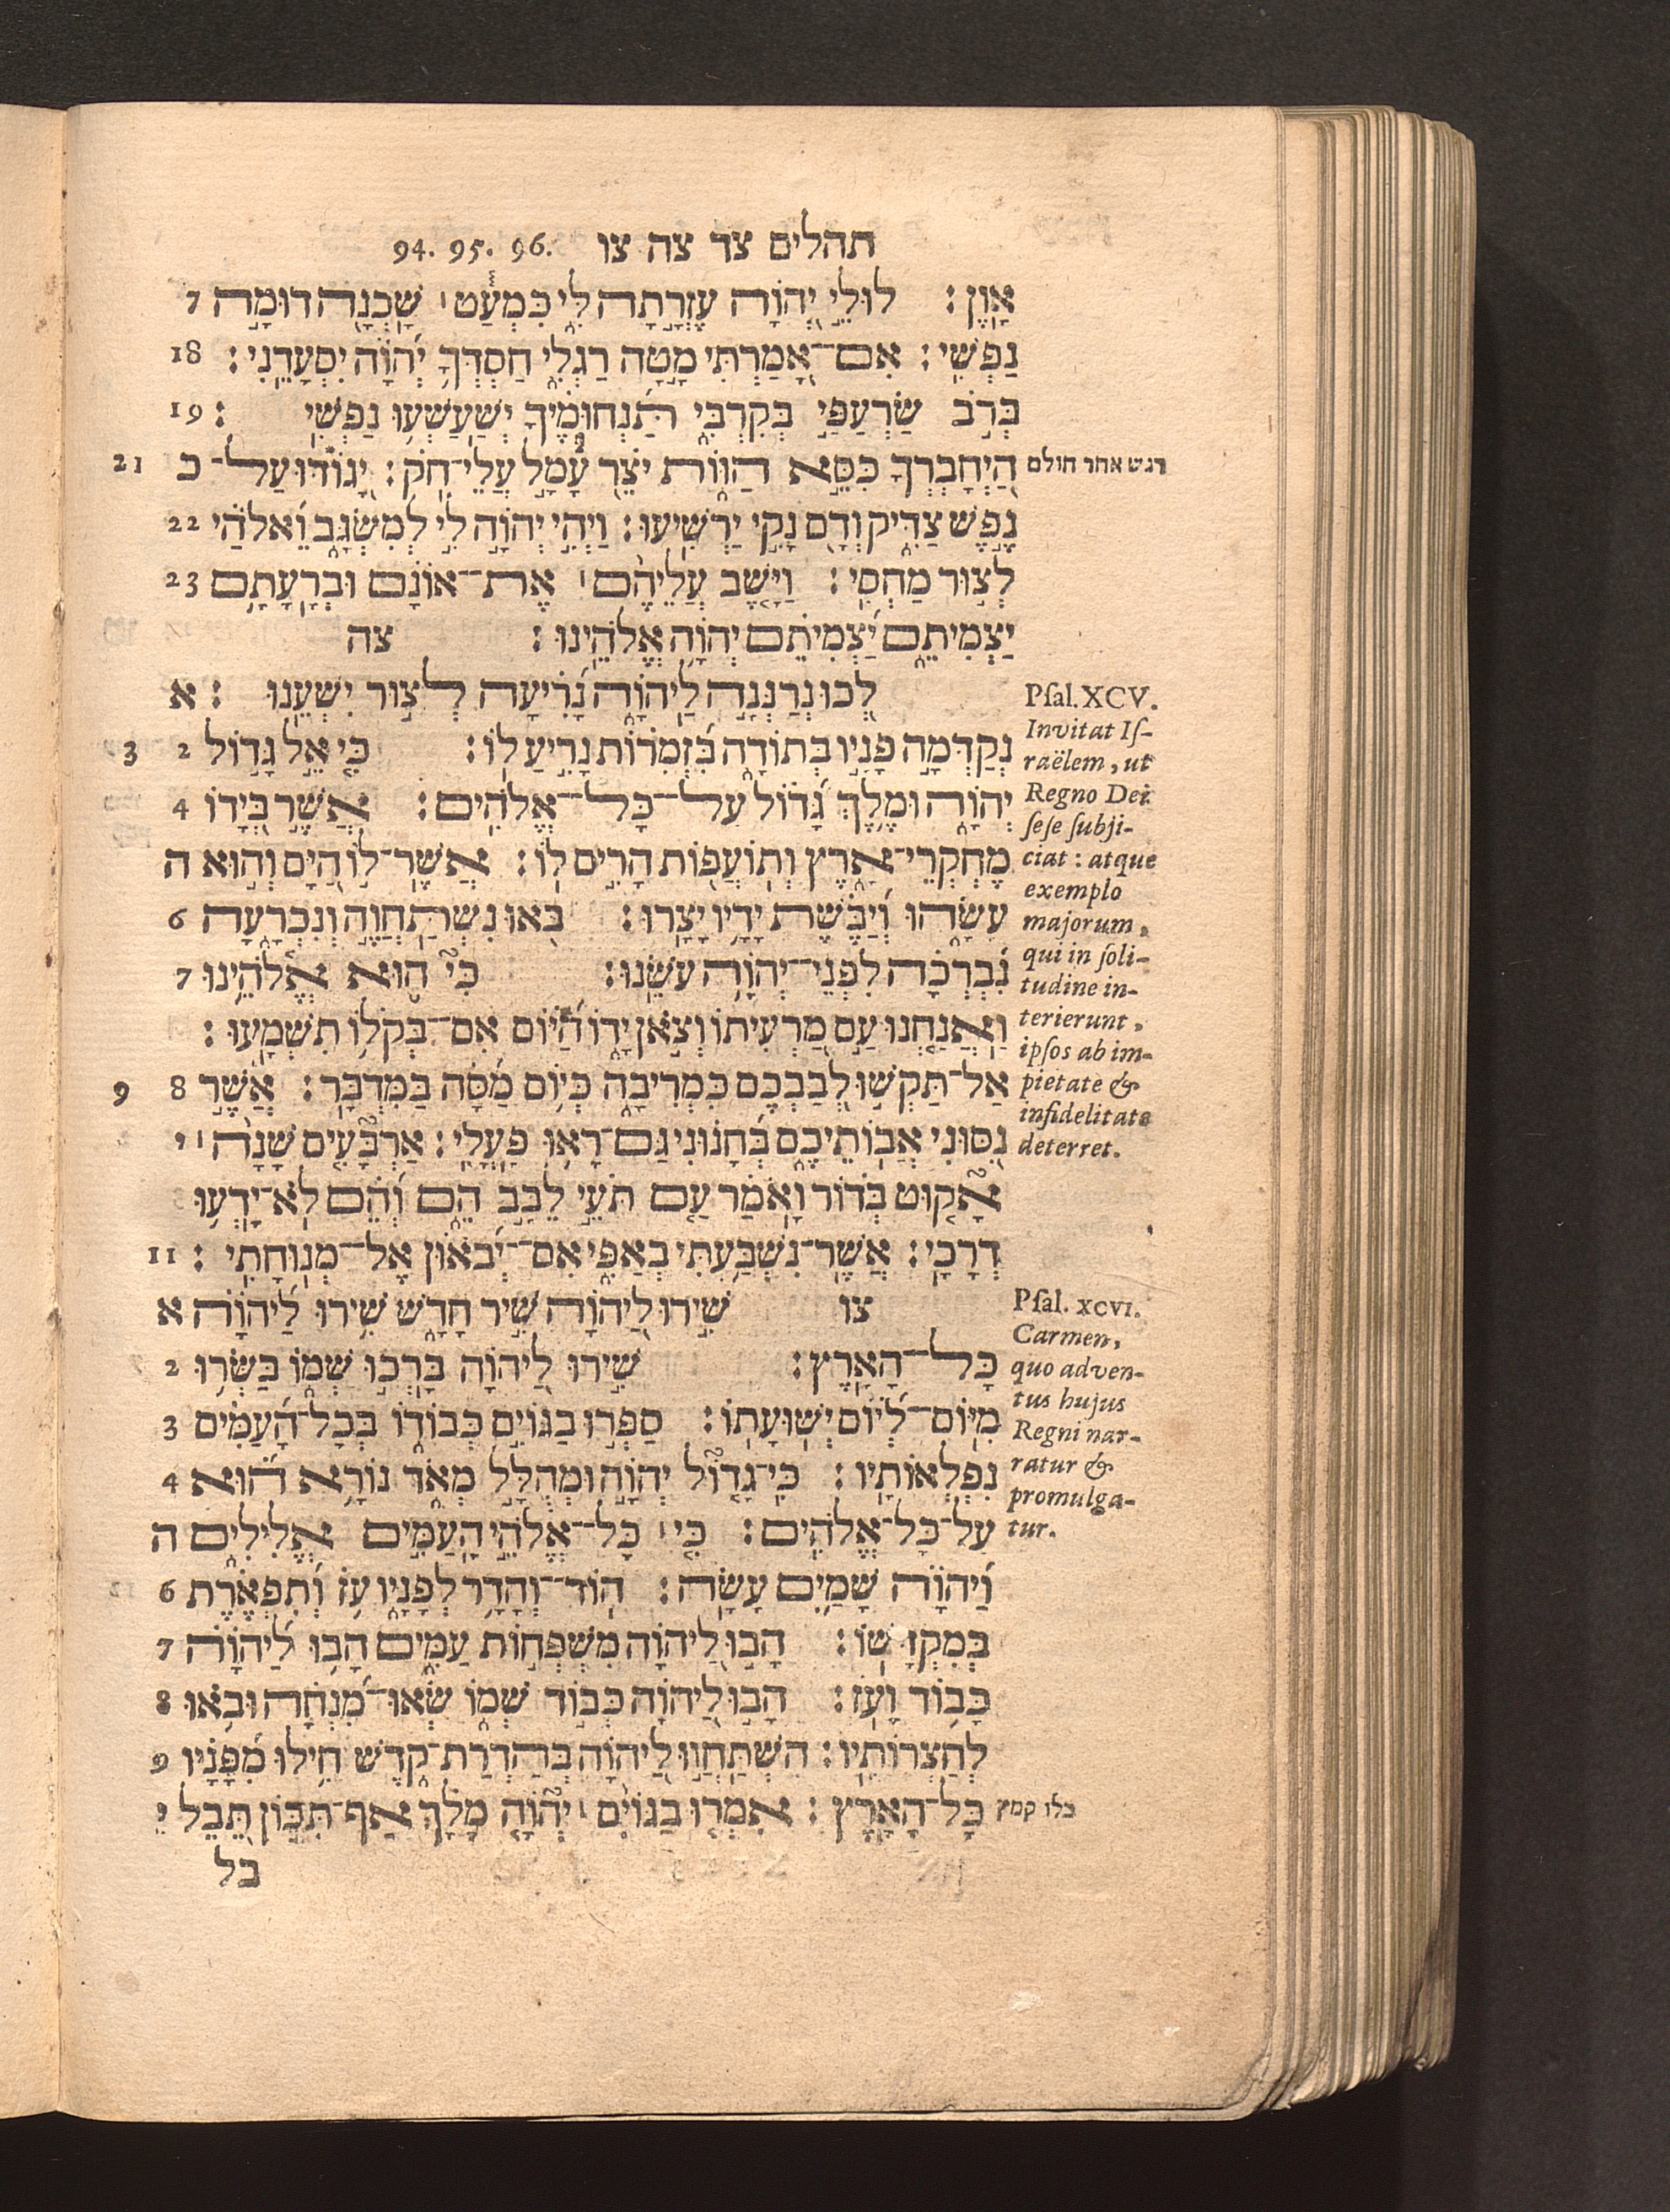 תהלים צד צה צו 94. 95. 96.
אָוֶן: לוּלֵי יְהוָֹה עֶזְרָתָה לִּי כִּמְעַט ׀ שָׁכְנָה דוּמָה 7
נַפְשִׁי: אִם־אָמַרְתִּי מָטָה רַגְלִי חַסְדְּךָ יְהוָֹה יִסְעָדֵנִי: 18
בְּרֹב שַׂרְעַפַּי בְּקִרְבִּי תַּנְחוּמֶיךָ יְשַׁעַשְׁעוּ נַפְשִׁי: 19
דגש אחר חולם
הַיְחָבְרְךָ כִּסֵּא הַוּוֹת יֹצֵר עָמָל עֲלֵי־חֹק: יָגוֹדּוּ עַל־ כ 21
נֶפֶשׁ צַדִּיק וְדָם נָקִי יַרְשִׁיעוּ: וַיְהִי יְהוָֹה לִי לְמִשְׂגָּב וֵאלֹהַי 22
לְצוּר מַחְסִי: וַיָּשֶׁב עֲלֵיהֶם ׀ אֶת־אוֹנָם וּבְרָעָתָם 23
יַצְמִיתֵם יַצְמִיתֵם יְהוָֹה אֱלֹהֵינוּ: צה
לְכוּ נְרַנְּנָה לַיהוָֹה נָרִיעָה לְצוּר יִשְׁעֵנוּ: א
נְקַדְּמָה פָנָיו בְּתוֹדָה בִּזְמִרוֹת נָרִיעַ לוֹ: כִּי אֵל גָּדוֹל 2 3
יְהוָֹה וּמֶלֶךְ גָּדוֹל עַל־כָּל־אֱלֹהִים: אֲשֶׁר בְּיָדוֹ 4
מֶחְקְרֵי־אָרֶץ וְתוֹעֲפוֹת הָרִים לוֹ: אֲשֶׁר־לוֹ הַיָּם וְהוּא ה
עָשָׂהוּ וְיַבֶּשֶׁת יָדָיו יָצָרוּ: בֹּאוּ נִשְׁתַּחֲוֶה וְנִכְרָעָה 6
נִבְרְכָה לִפְנֵי־יְהוָֹה עֹשֵׂנוּ: כִּי הוּא אֱלֹהֵינוּ 7
וַאֲנַחְנוּ עַם מַרְעִיתוֹ וְצֹאן יָדוֹ הַיּוֹם אִם־בְּקֹלוֹ תִשְׁמָעוּ:
אַל־תַּקְשׁוּ לְבַבְכֶם כִּמְרִיבָה כְּיוֹם מַסָּה בַּמִּדְבָּר: אֲשֶׁר 8 9
נִסּוּנִי אֲבוֹתֵיכֶם בְּחָנוּנִי גַּם־רָאוּ פָעֳלִי: אַרְבָּעִים שָׁנָה ׀ י
אָקוּט בְּדוֹר וָאֹמַר עַם תֹּעֵי לֵבָב הֵם וְהֵם לֹא־יָדְעוּ
דְרָכָי: אֲשֶׁר־נִשְׁבַּעְתִּי בְאַפִּי אִם־יְבֹאוּן אֶל־מְנוּחָתִי: 11
צו שִׁירוּ לַיהוָֹה שִׁיר חָדָשׁ שִׁירוּ לַיהוָֹה א
כָּל־הָאָרֶץ: שִׁירוּ לַיהוָֹה בָּרְכוּ שְׁמוֹ בַּשְּׂרוּ 2
מִיּוֹם־לְיוֹם יְשׁוּעָתוֹ: סַפְּרוּ בַגּוֹיִם כְּבוֹדוֹ בְּכָל־הָעַמִּים 3
נִפְלְאוֹתָיו: כִּי־גָדוֹל יְהוָֹה וּמְהֻלָּל מְאֹד נוֹרָא הוּא 4
עַל־כָּל־אֱלֹהִים: כִּי ׀ כָּל־אֱלֹהֵי הָעַמִּים אֱלִילִים ה
וַיהוָֹה שָׁמַיִם עָשָׂה: הוֹד־וְהָדָר לְפָנָיו עֹז וְתִפְאֶרֶת 6
בְּמִקְדָּשׁוֹ: הָבוּ לַיהוָֹה מִשְׁפְּחוֹת עַמִּים הָבוּ לַיהוָֹה 7
כָּבוֹד וָעֹז: הָבוּ לַיהוָֹה כְּבוֹד שְׁמוֹ שְׂאוּ־מִנְחָה וּבֹאוּ 8
לְחַצְרוֹתָיו: הִשְׁתַּחֲווּ לַיהוָֹה בְּהַדְרַת־קֹדֶשׁ חִילוּ מִפָּנָיו 9
כָּל־הָאָרֶץ: אִמְרוּ בַגּוֹיִם ׀ יְהוָֹה מָלָךְ אַף־תִּכּוֹן תֵּבֵל י
כלו קמץ
כל
Psal. XCV.
Invitat Is-
raëlem, ut
Regno Dei
sese subji-
ciat: atque
exemplo
majorum,
qui in soli-
tudine in-
terierunt,
ipsos ab im-
pietate &
infidelitate
deterret.
Psal. XCVI.
Carmen,
quo adven-
tus hujus
Regni nar-
ratur &
promulga-
tur.